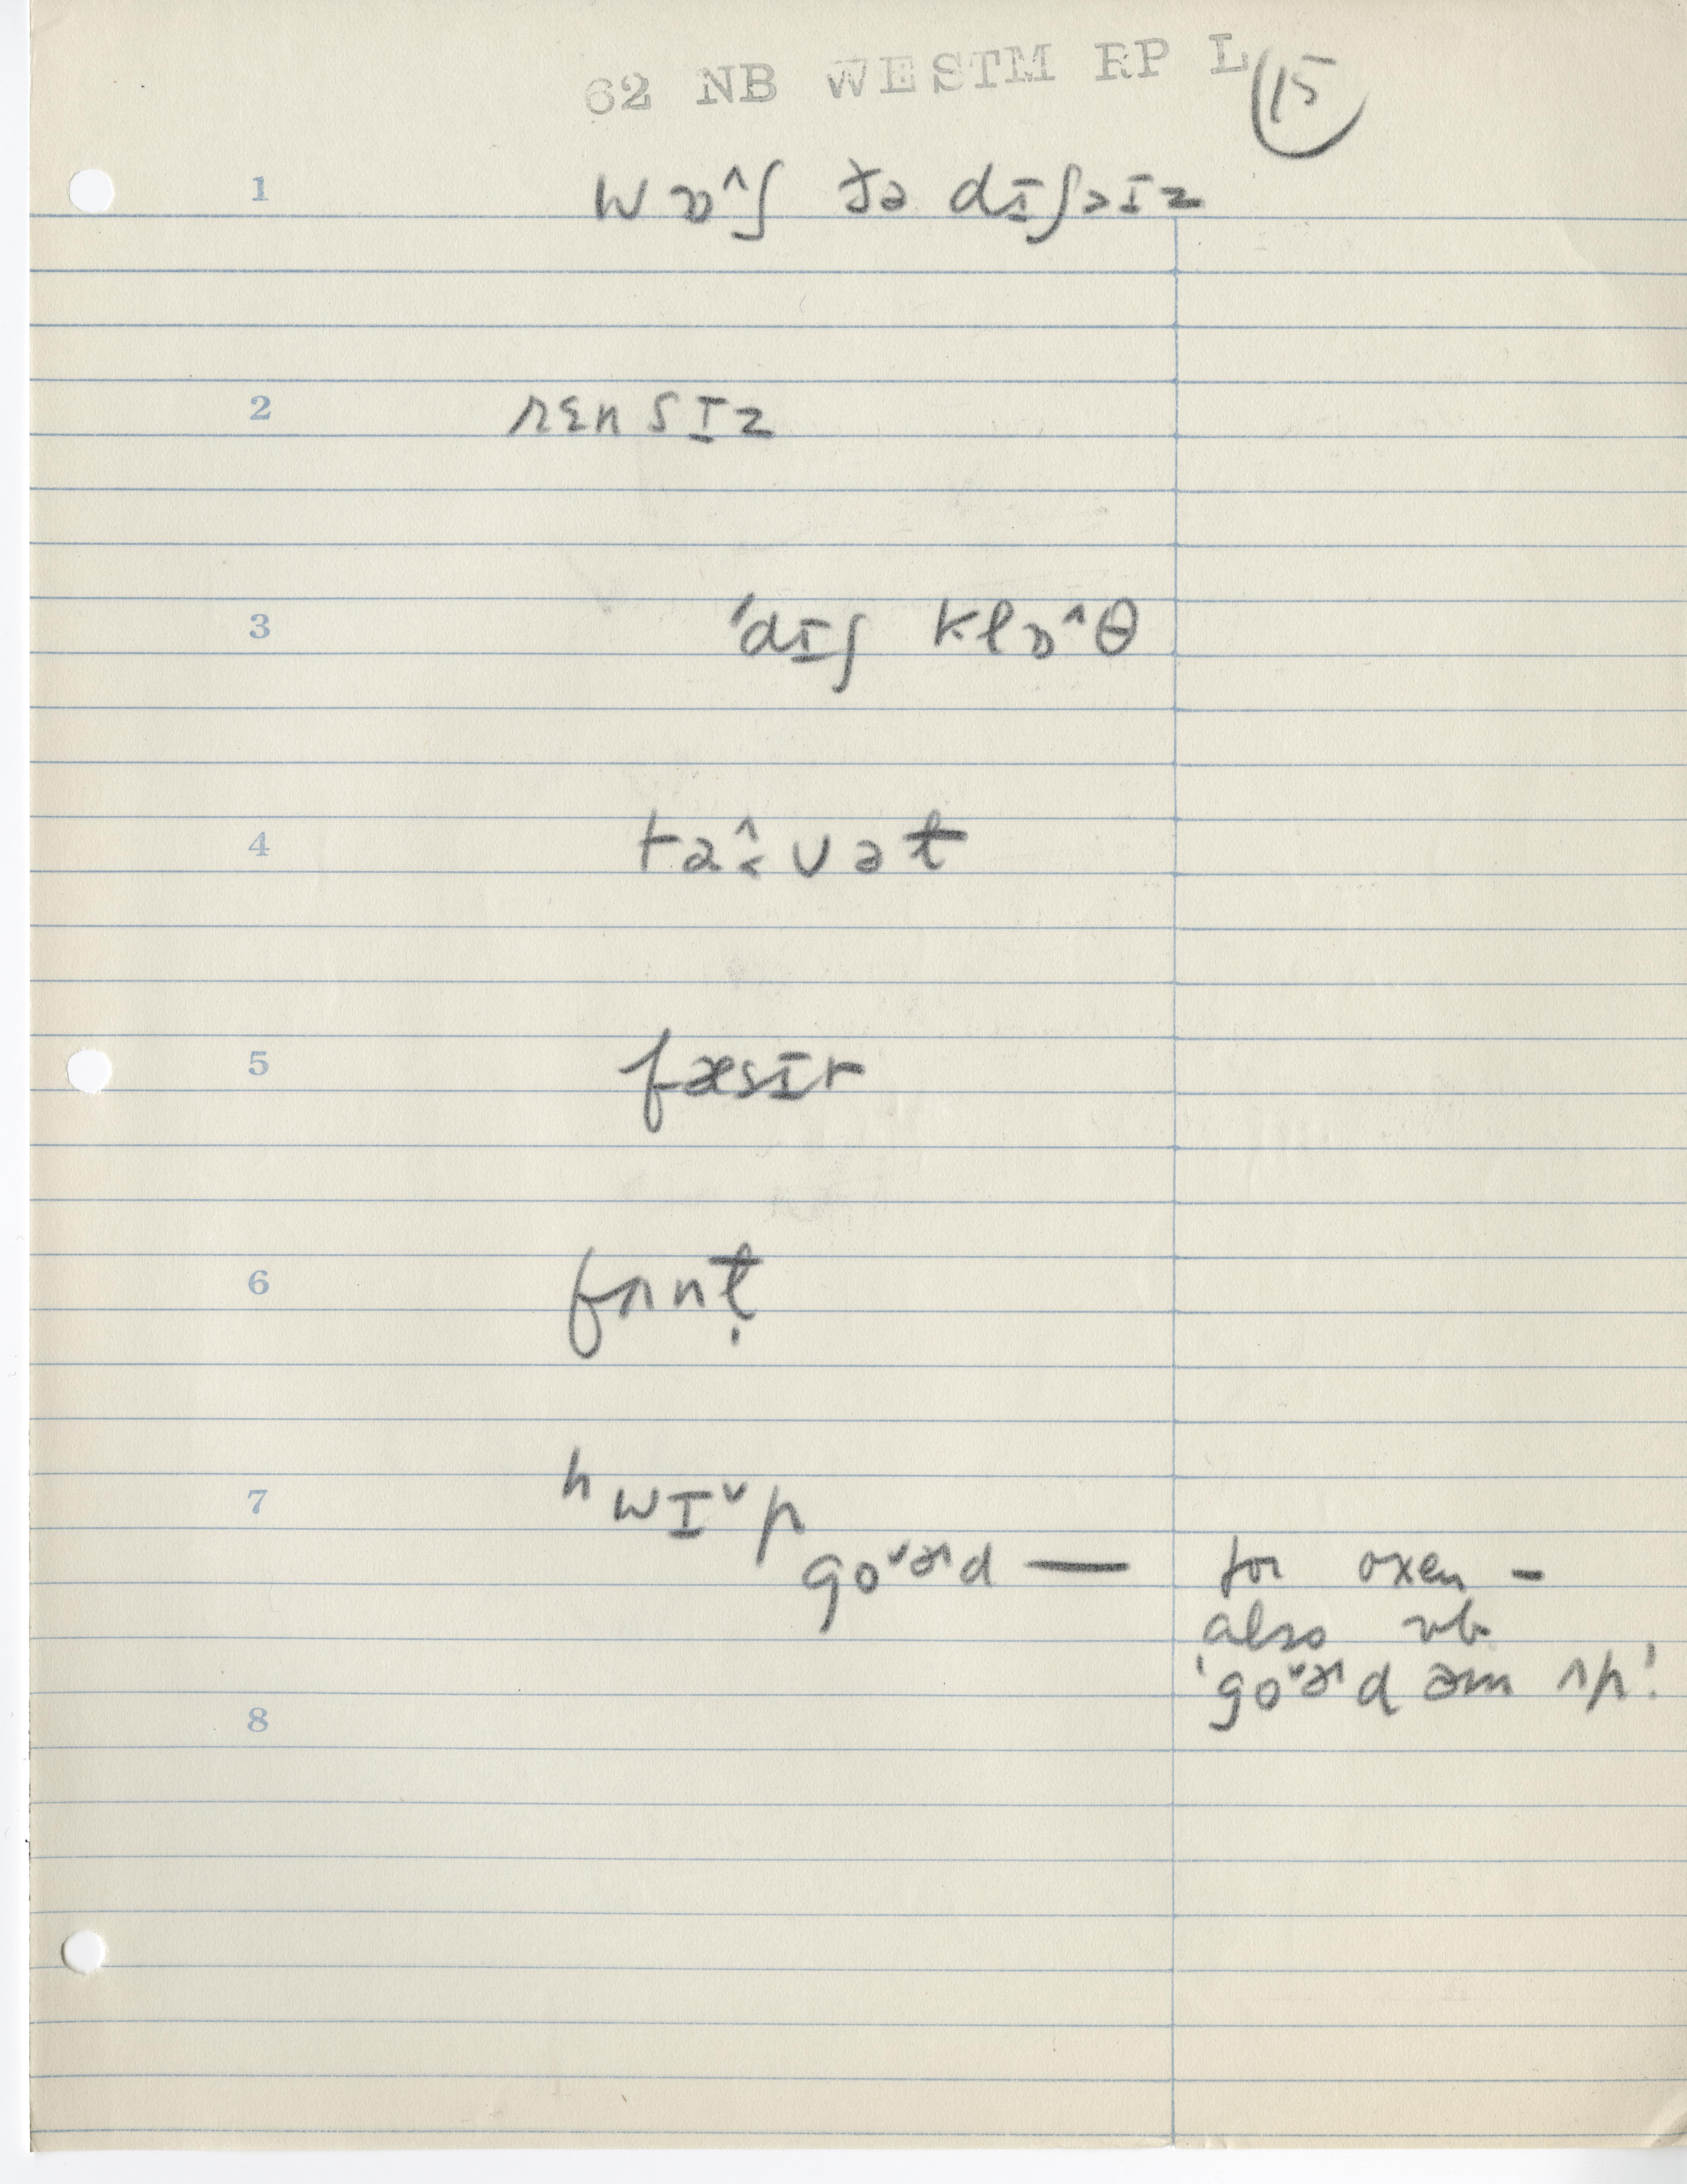 62 NB WESTM RP L 15
1 wɒ^ʃ ðə dɪʃəɪz
2 rɛnsɪz
3 'dɪʃ klɒ^θ
4 ta^˂vət
5 fæsɪt
6
7 hwɪˇp
goˇɚd — for oxen -
also vb
'goˇɚd əm ʌp!
8